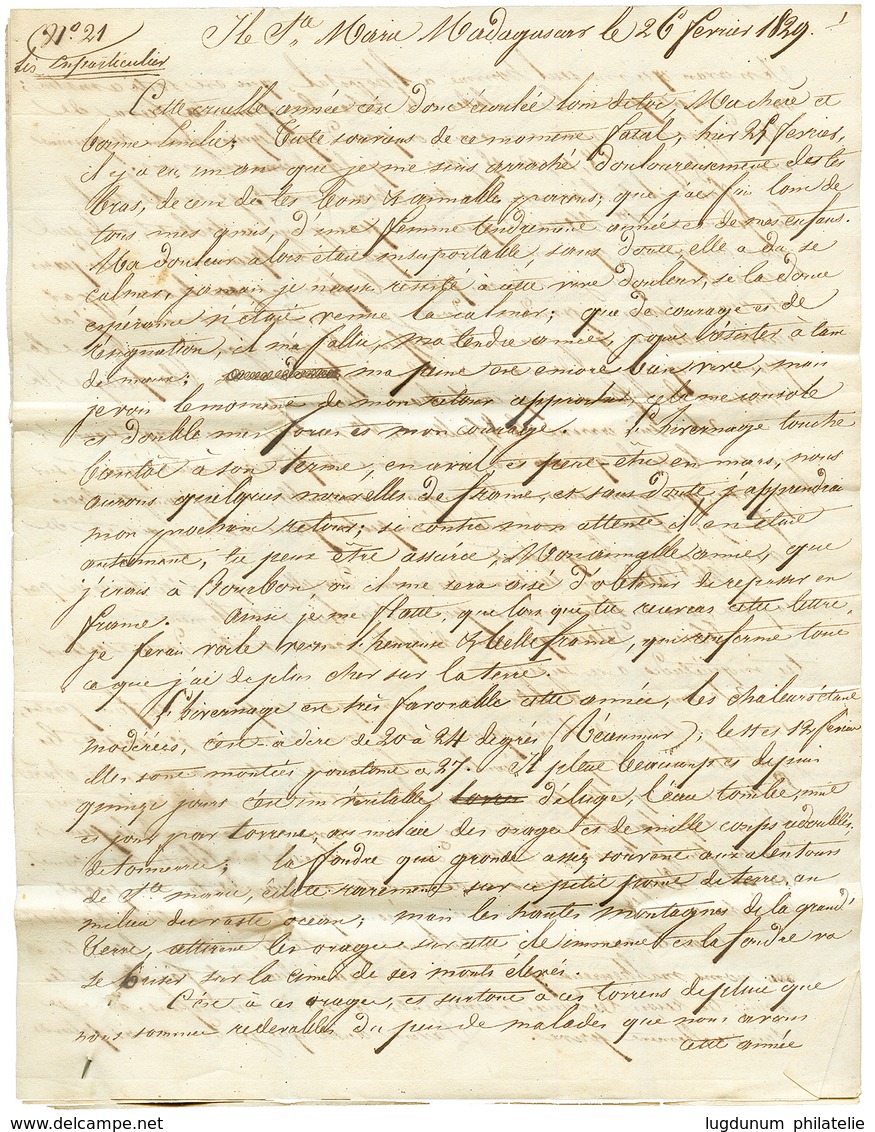 N.° 21
Ile Ste Marie Madagascar le 26 fevrier 1829.
Lis en particulier
Cette cruelle année s'est donc écoulée loin de toi Ma chère et
bonne Emilie; tu te souviens de ce moment fatal, hier 25 fevrier,
il y a eu un an que je me suis arraché douloureusement de tes
bras, de ceux de tes bons & aimables parens; que j'ai fui loin de
tous mes amis, d'une femme tendrement aimée et de mes enfans.
Ma douleur alors était insuportable, sans doute elle a du se
calmer, jamais je n'eusse résisté à cette vive douleur, si la douce
espérance n'était venue la calmer; que de courage et de
résignation, il m'a fallu, ma tendre amie, pour résister à tant
de maux; ma peine est encore bien vive, mais
je vois le moment de mon retour approcher, cela me console
et double mes forces et mon courage. L'hivernage touche
bientôt à son terme, en avril et peut-être en mars, nous
aurons quelques nouvelles de france, et sans doute, j'apprendrai
mon prochain retour; si contre mon attente il en était
autrement, tu peux être assurée, Mon aimable amie, que
j'irais à Bourbon, où il me sera aisé d'obtenir de repasser en
france. Ainsi je me flatte, que lorsque tu recevras cette lettre,
je ferai voile vers l'heureuse & belle france, qui renferme tout
ce que j'ai de plus cher sur la terre.
L'hivernage est très favorable cette année, les chaleurs étant
modérées, c'est-à-dire de 20 à 24 degrés (Réaumur); le 11 et 12 fevrier
elles sont montées pourtant à 27. Il pleut beaucoup et depuis
quinze jours c'est un véritable déluge, l'eau tombe, nuit
et jour par torrent, au milieu des orages et de mille coups redoublés
de tonnerre; la foudre qui gronde assez souvent aux alentours
de Ste marie, éclate rarement sur ce petit point de terre, au
milieu du vaste océan; mais les hautes montagnes de la grand'
Terre, attirent les orages sur cette île immense et la foudre va
se briser sur la cime de ses monts élevés.
C'est à ces orages, et surtout à ces torrens de pluie que
nous sommes redevables du peu de malades que nous avons
cette année
lugdunum philatelie
www.delcampe.net